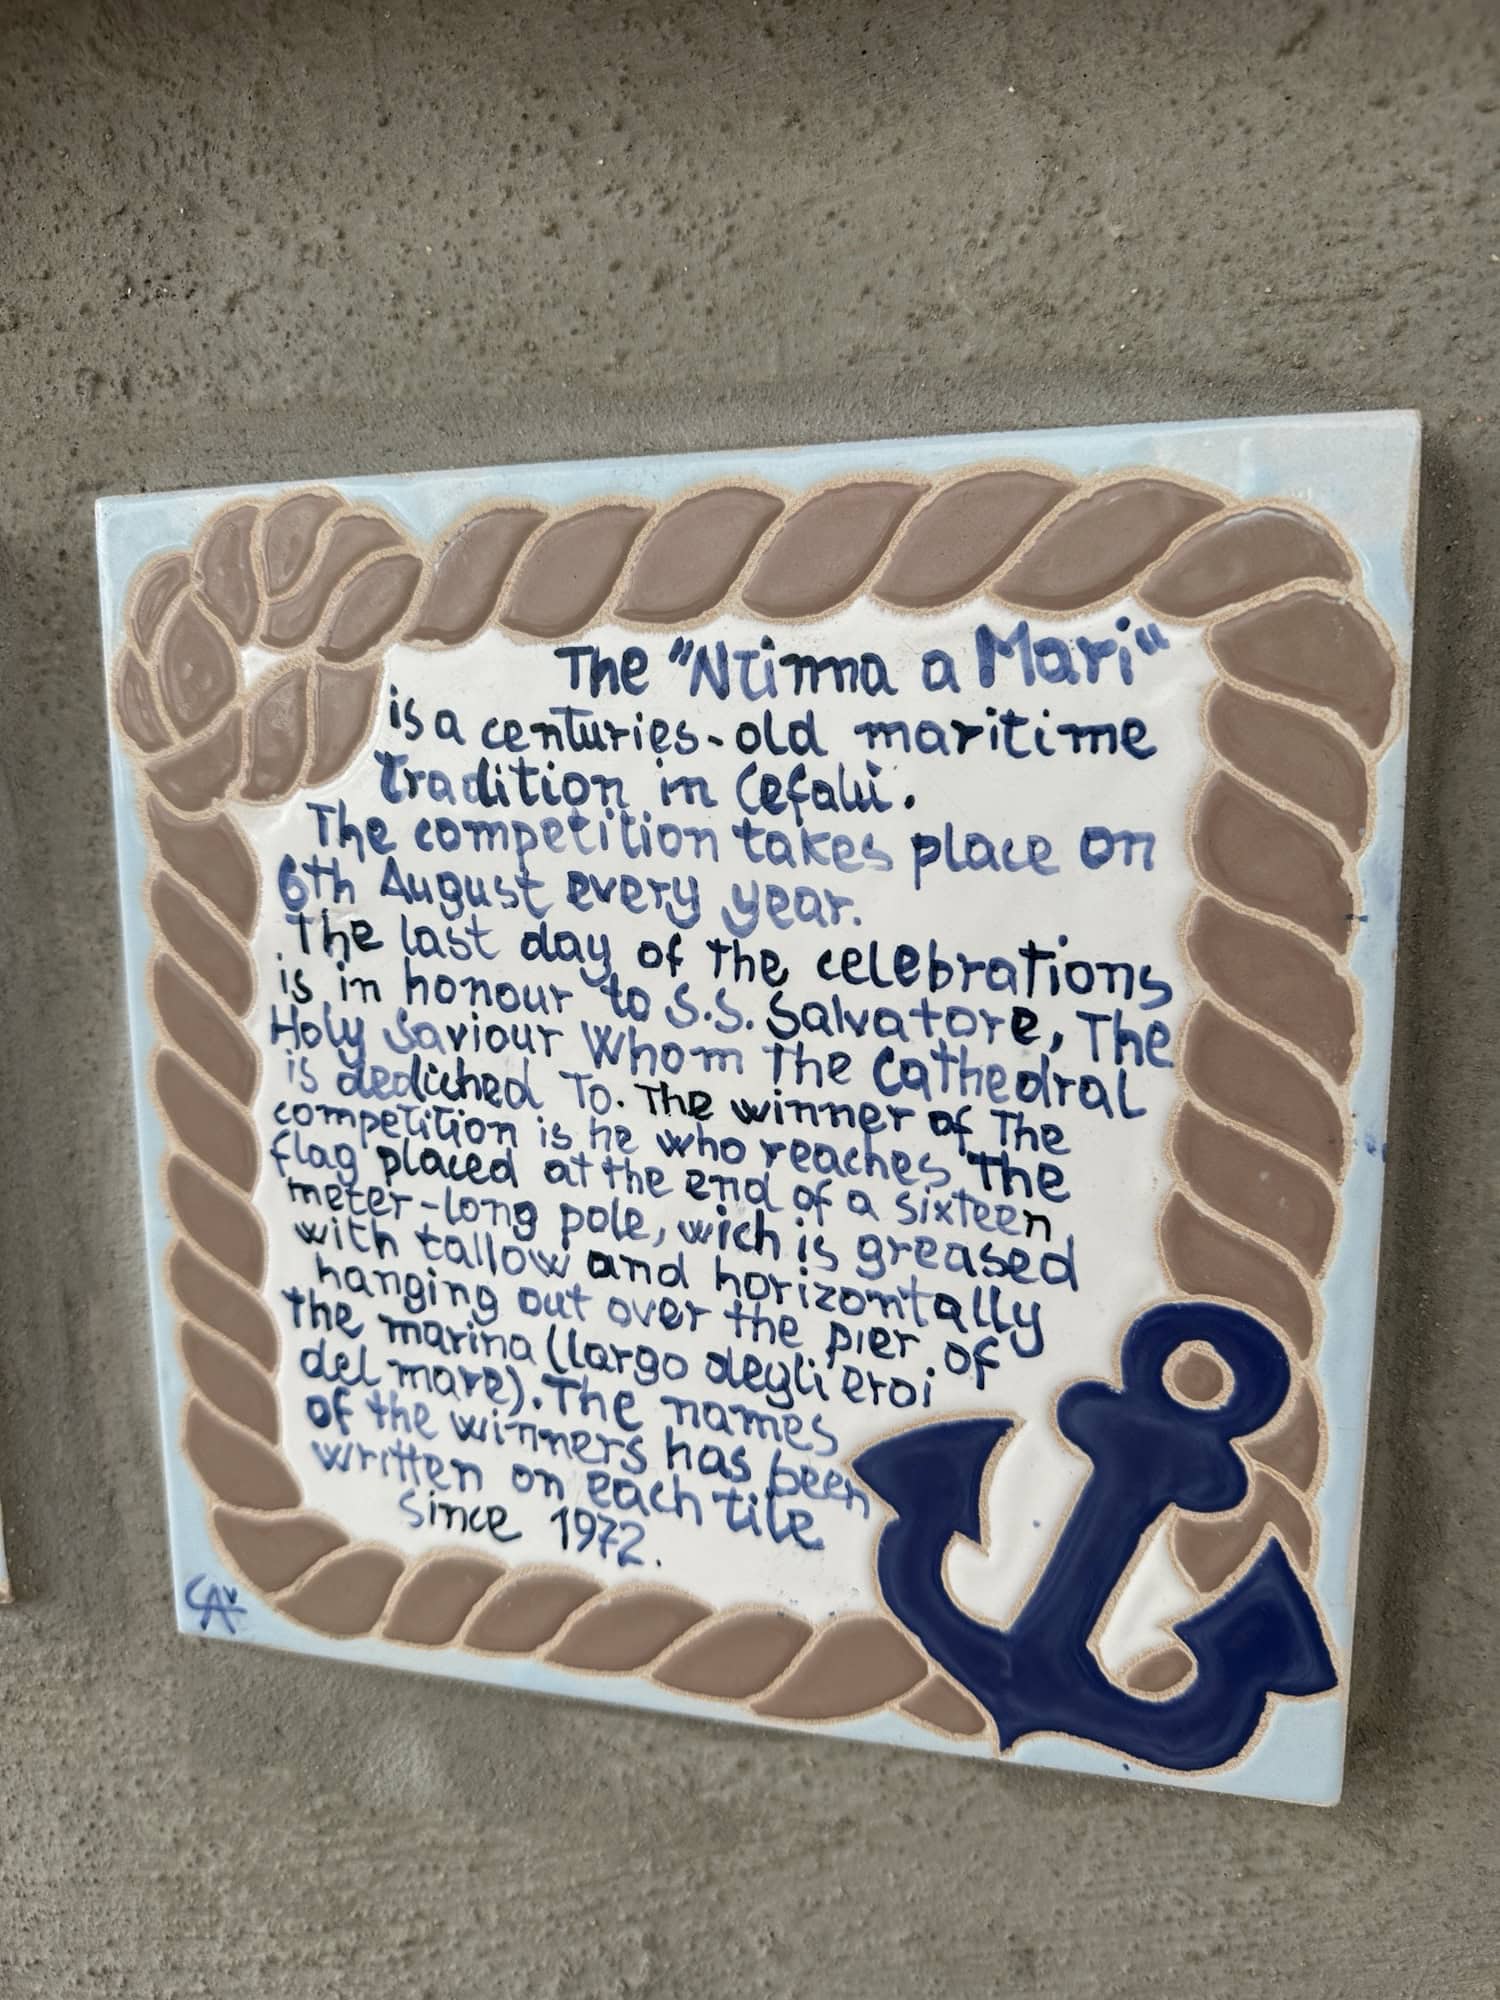 The "Ntinna a Mari"
is a centuries-old maritime
tradition in Cefalù.
The competition takes place on
6th August every year.
The last day of the celebrations
is in honour to S.S. Salvatore, The
Holy Saviour Whom The Cathedral
is dediched To. The winner of The
competition is he who reaches The
flag placed at the end of a sixteen
meter-long pole, wich is greased
with tallow and horizontally
hanging out over the pier of
the marina (largo degli eroi
del mare). The names
of the winners has been
written on each tile
since 1972.